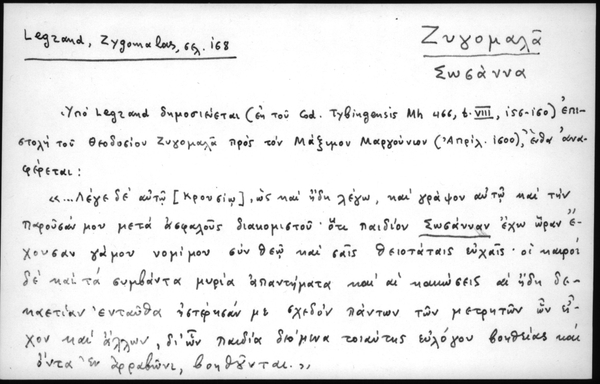 Legrand, Zygomalas, σελ. 158
Ζυγομαλᾶ
Σωσάννα
Ὑπὸ Legrand δημοσιεύεται (ἐκ τοῦ Cod. Tybingensis Mh 466, t. VIII, 156-160) ἐπι-
στολὴ τοῦ Θεοδοσίου Ζυγομαλᾶ πρὸς τὸν Μάξιμον Μαργούνιον (Ἀπρίλ. 1600), ἔνθα ἀνα-
φέρεται:
«...Λέγε δὲ αὐτῷ [Κρουσίῳ], ὡς καὶ ἤδη λέγω, καὶ γράψον αὐτῷ καὶ τὴν
παροῦσάν μου μετὰ ἀσφαλοῦς διακομιστοῦ· ὅτι παιδίον Σωσάνναν ἔχω ὥραν ἔ-
χουσαν γάμου νομίμου σὺν θεῷ καὶ σαῖς θειοτάταις εὐχαῖς· οἱ καιροὶ
δὲ καὶ τὰ συμβάντα μυρία ἀπαντήματα καὶ αἱ κακώσεις αἱ ἤδη δε-
καετίαν ἐνταῦθα ὑστέρησάν με σχεδὸν πάντων τῶν μετρητῶν ὧν εἶ-
χον καὶ ἄλλων, δι' ὧν παιδία δεόμενα τοιαύτης εὐλόγου βοηθείας καὶ
ὄντα ἐν ἀρραβῶνι, βοηθοῦνται.»